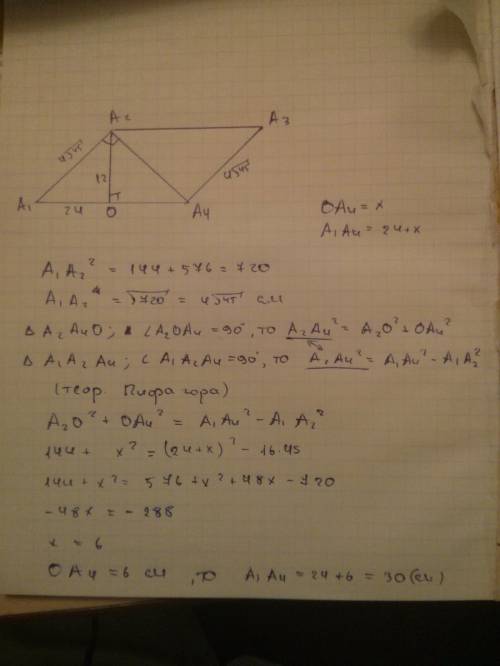 A₂
A₃
4√45
12
4√45
A₁
24
O
A₄
OA₄ = x
A₁A₄ = 24+x
A₁A₂² = 144 + 576 = 720
A₁A₂ = √720 = 4√45 см
Δ A₂A₄O; ∠A₂OA₄ = 90°, то A₂A₄² = A₂O² + OA₄²
Δ A₁A₂A₄; ∠A₁A₂A₄ = 90°, то A₂A₄² = A₁A₄² - A₁A₂²
(теор. Пифагора)
A₂O² + OA₄² = A₁A₄² - A₁A₂²
144 + x² = (24+x)² - 16·45
144 + x² = 576 + x² + 48x - 720
-48x = -288
x = 6
OA₄ = 6 см, то A₁A₄ = 24 + 6 = 30 (см)